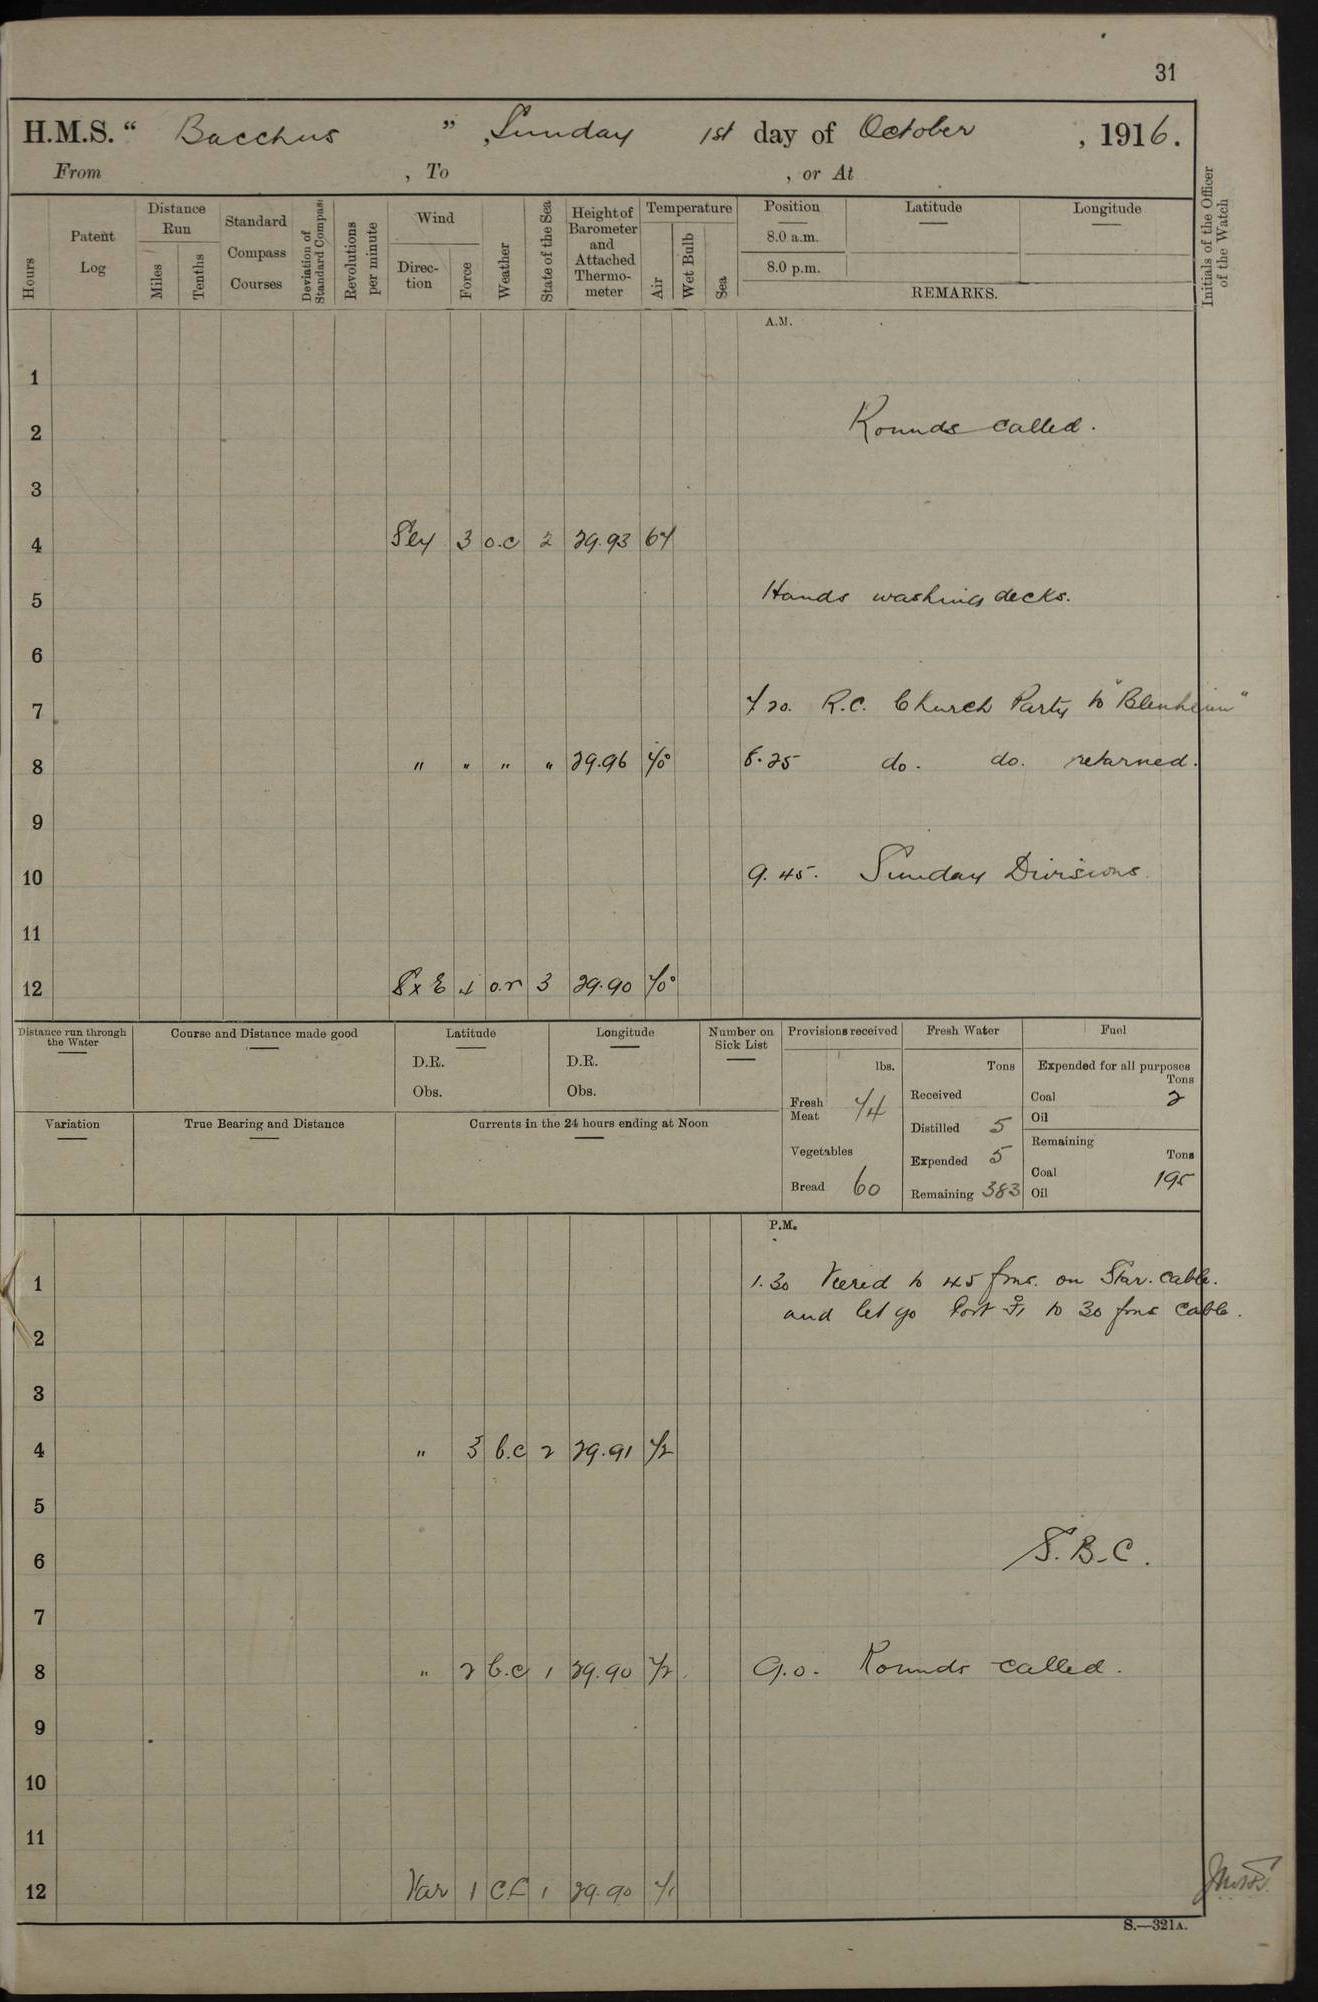 31
H.M.S. " Bacchus " , Sunday 1st day of October , 1916.
From , To , or At
Hours
Patent Log
Distance Run
Miles
Tenths
Standard Compass Courses
Deviation of Standard Compass
Revolutions per minute
Wind
Direction
Force
Weather
State of the Sea
Height of Barometer and Attached Thermometer
Temperature
Air
Wet Bulb
Sea
Position
8.0 a.m.
8.0 p.m.
Latitude
Longitude
REMARKS.
Initials of the Officer of the Watch
A.M.
1
2 Rounds called.
3
4 Sly 3 o.c 2 29.93 67
5 Hands washing decks.
6
7 7 20. R.C. Church Party to "Blenheim"
8 " " " " 29.96 70 8.25 do. do. returned.
9
10 9.45. Sunday Divisions
11
12 S x E 4 o.r 3 29.90 70
Distance run through the Water
Course and Distance made good
Latitude
D.R.
Obs.
Longitude
D.R.
Obs.
Number on Sick List
Variation
True Bearing and Distance
Currents in the 24 hours ending at Noon
Provisions received
lbs.
Fresh Meat 74
Vegetables
Bread 60
Fresh Water
Tons
Received
Distilled 5
Expended 5
Remaining 383
Fuel
Expended for all purposes
Tons
Coal 2
Oil
Remaining
Tons
Coal 195
Oil
P.M.
1 1.30 Veered to 45 fms. on Star. cable.
and let go Port to 30 fms cable.
2
3
4 " 3 b.c 2 29.91 72
5
6 S.B.C.
7
8 " 2 b.c 1 29.90 72 9.0. Rounds called.
9
10
11
12 Var 1 1 29.90 71
S.—321A.